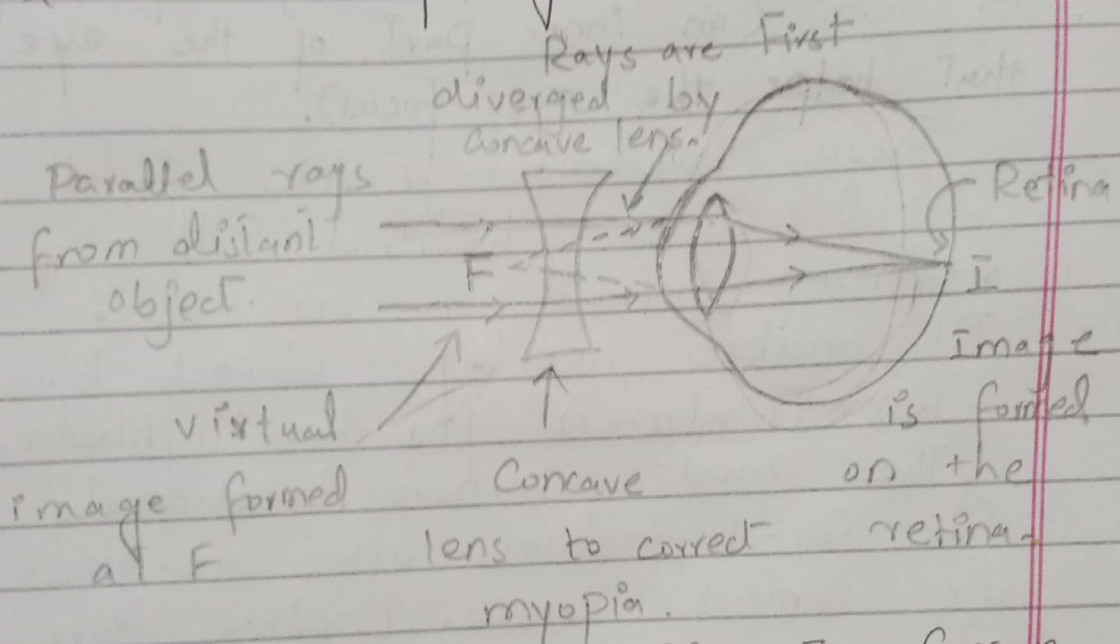 Rays are First
diverged by
concave lens.
Parallel rays
from distant
object.
F
Retina
I
Image
is formed
on the
retina.
virtual
image formed
at F
Concave
lens to correct
myopia.